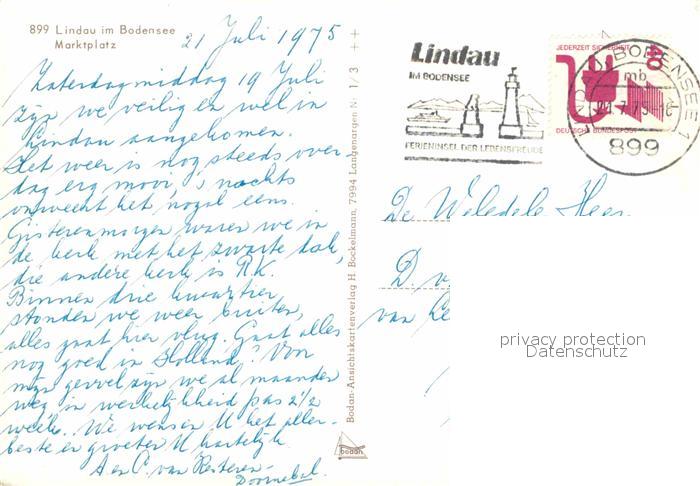 899 Lindau im Bodensee
Marktplatz
21 Juli 1975
Zaterdagmiddag 19 Juli
zijn we veilig en wel in
Lindau aangekomen.
Het weer is nog steeds over-
dag erg mooi, 's nachts
onweert het nogal eens.
Gisterenmorgen waren we in
de kerk met het zwarte dak,
die andere kerk is R.K.
Binnen drie kwartier
stonden we weer buiten,
alles gaat hier vlug. Gaat alles
nog goed in Holland? Voor
mijn gevoel zijn we al maanden
weg in werkelijkheid pas 2 1/2
week. We wensen U het aller-
beste en groeten U hartelijk
A en C. van Resteren-
Doornebal.
Bodan-Ansichtskartenverlag H. Bockelmann, 7994 Langenargen N: 1/3 ++
bodan
Lindau
IM BODENSEE
FERIENINSEL DER LEBENSFREUDE
JEDERZEIT SICHERHEIT
40
DEUTSCHE BUNDESPOST
LINDAU, BODENSEE 1
mb
21.7.75-18
899
De Weledele Heer
D. v
van Re
privacy protection
Datenschutz